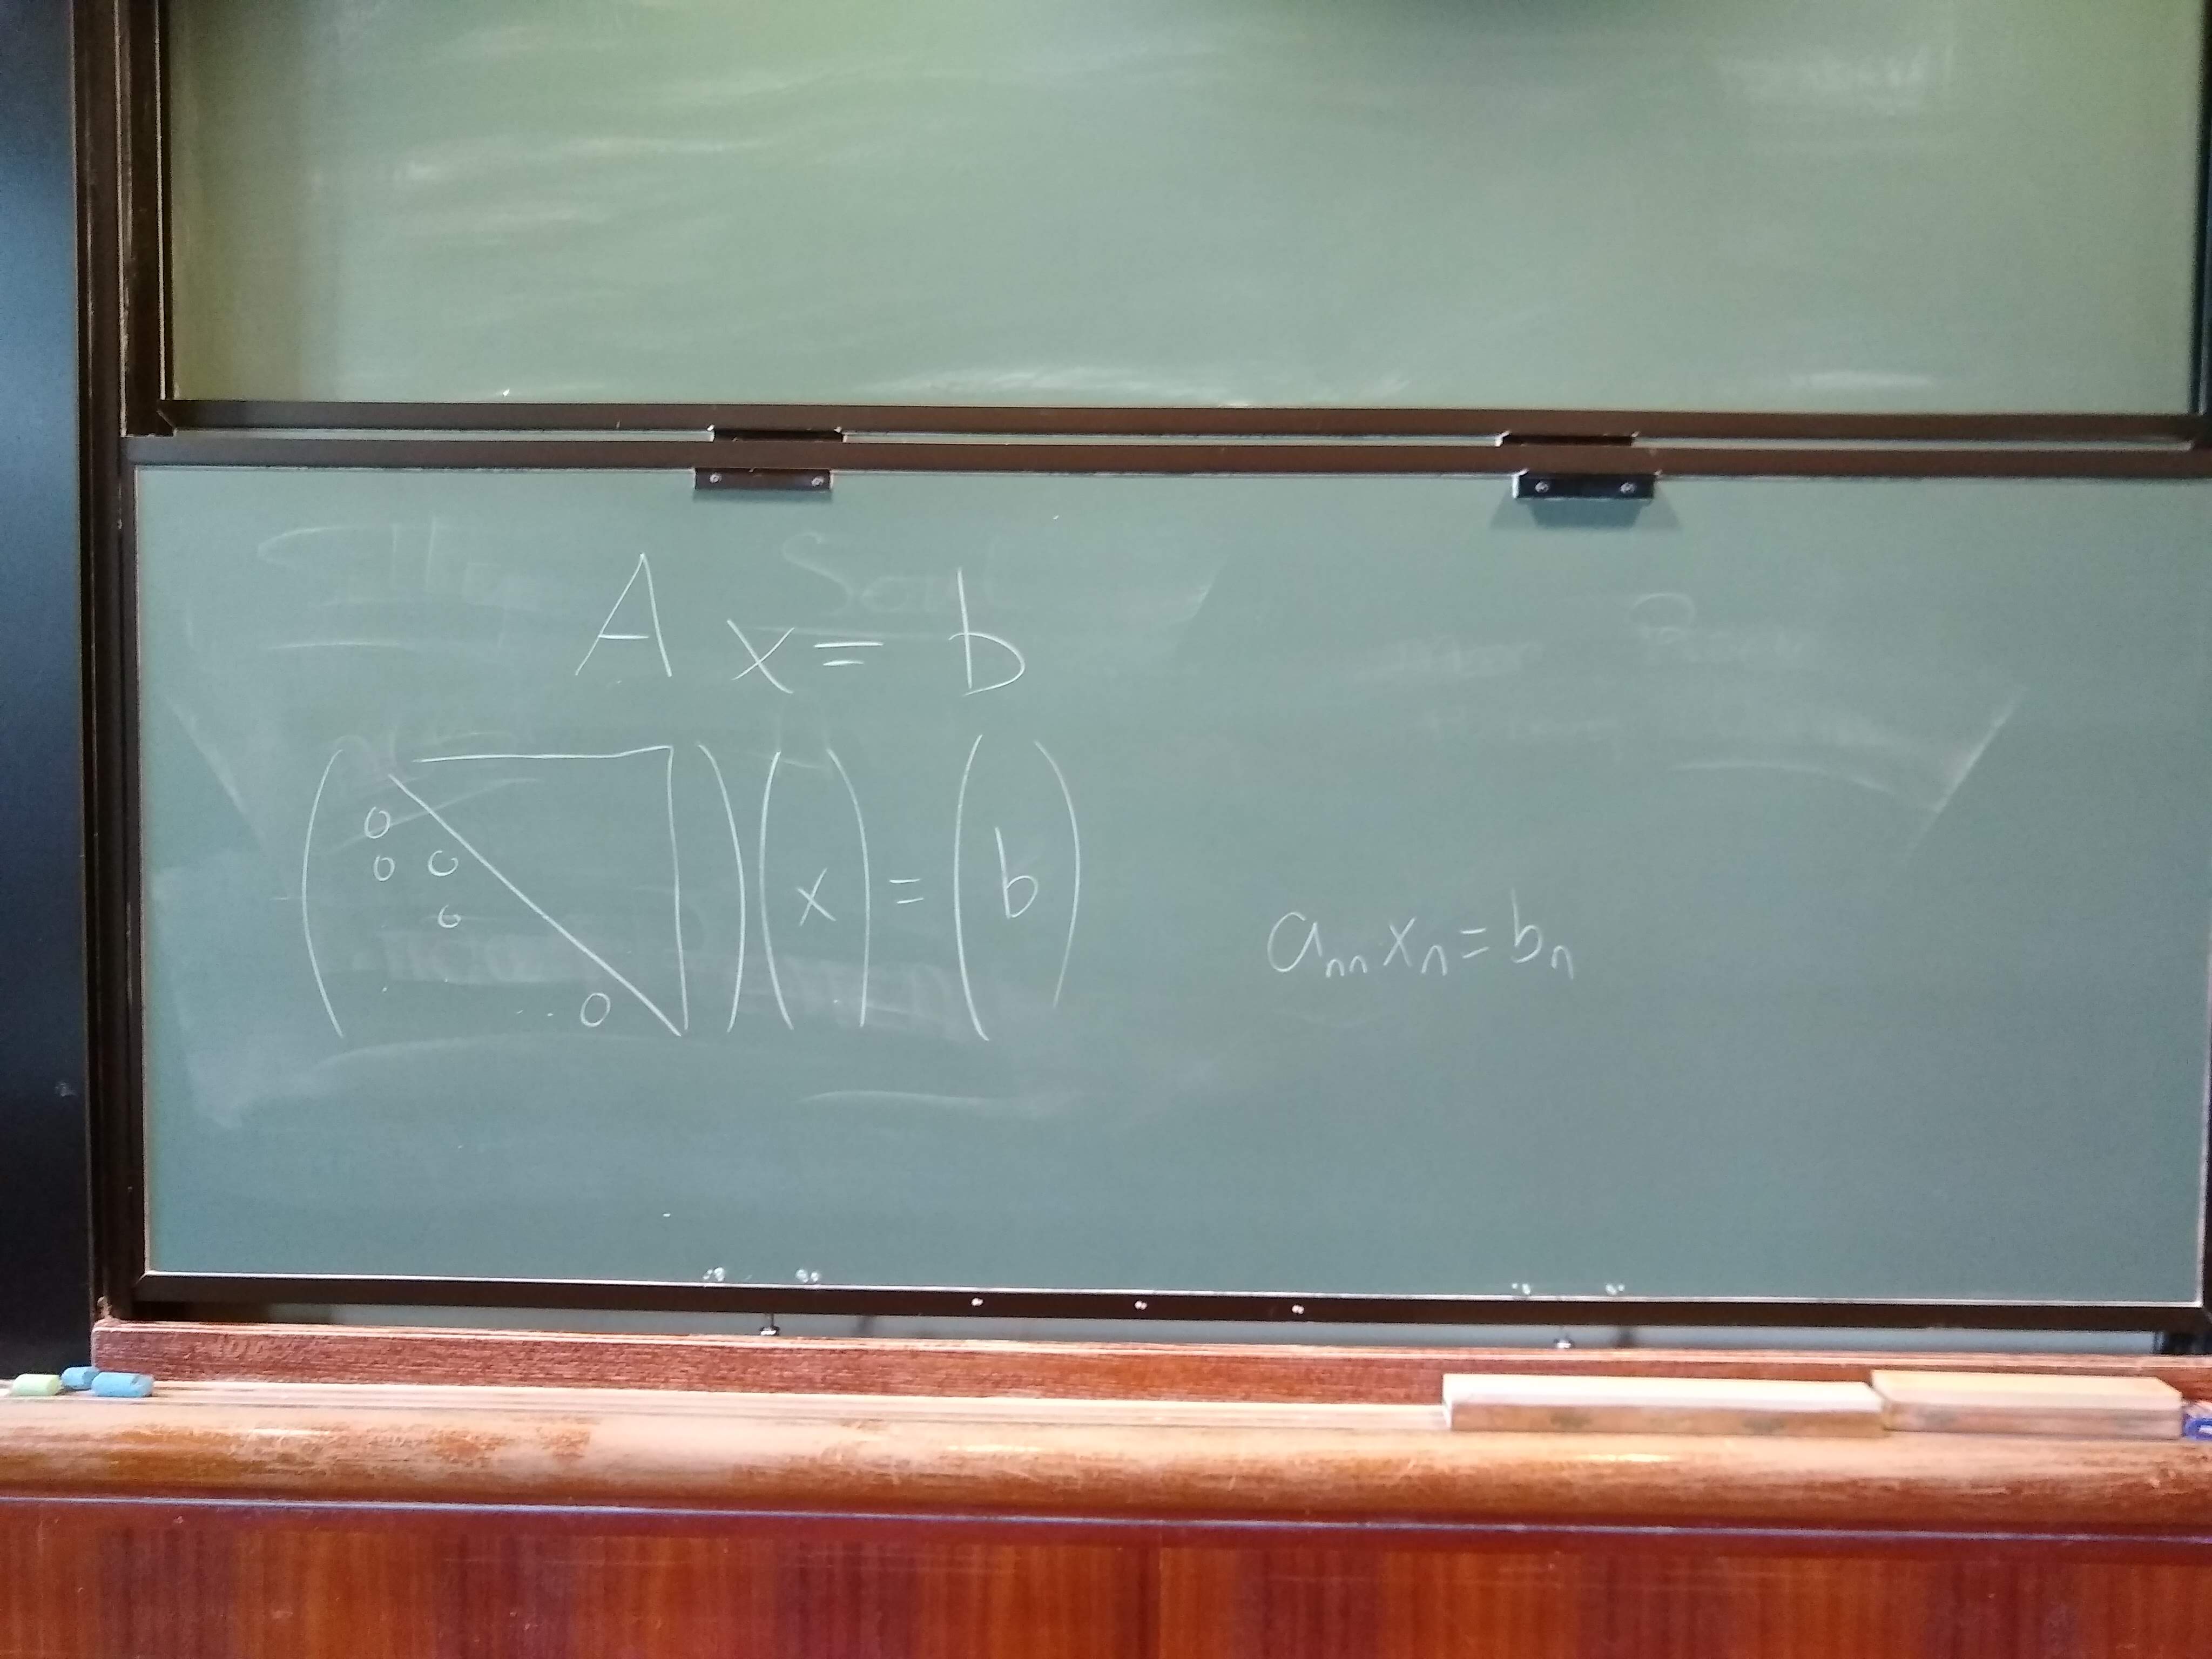 A x = b
0
0 0
0
0
( ) ( x ) = ( b )
aₙₙ xₙ = bₙ